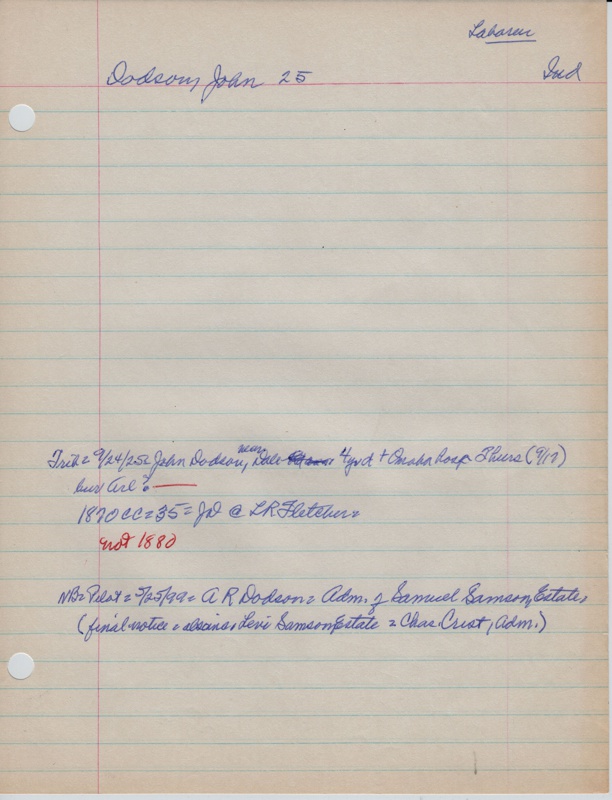 Laborer
Dodson, John 25 Ind
Trib = 9/24/25 = John Dodson, near Dale 4 yrd + Omaha hosp Thurs (9/17)
bur Arl ?
1870 CC = 35 = Jd @ LR Fletcher =
not 1880
NB = Pilot = 5/25/99 = A R Dodson = Adm. of Samuel Samson Estate,
(final notice = Levi Samson Estate = Chas. Crist, Adm.)